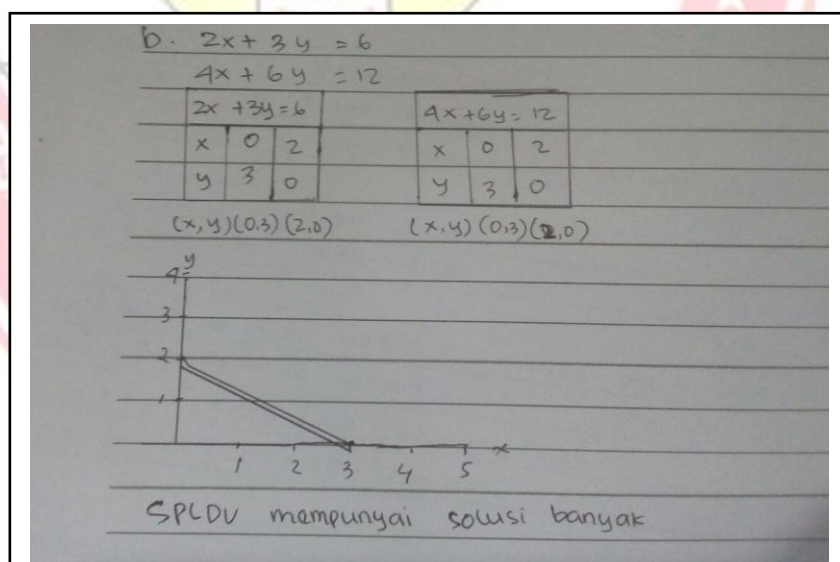 b. 2x + 3y = 6
4x + 6y = 12
2x + 3y = 6
x 0 2
y 3 0
(x, y) (0,3) (2,0)
4x + 6y = 12
x 0 2
y 3 0
(x, y) (0,3) (2,0)
y
4
3
2
1
1 2 3 4 5 x
SPLDV mempunyai solusi banyak